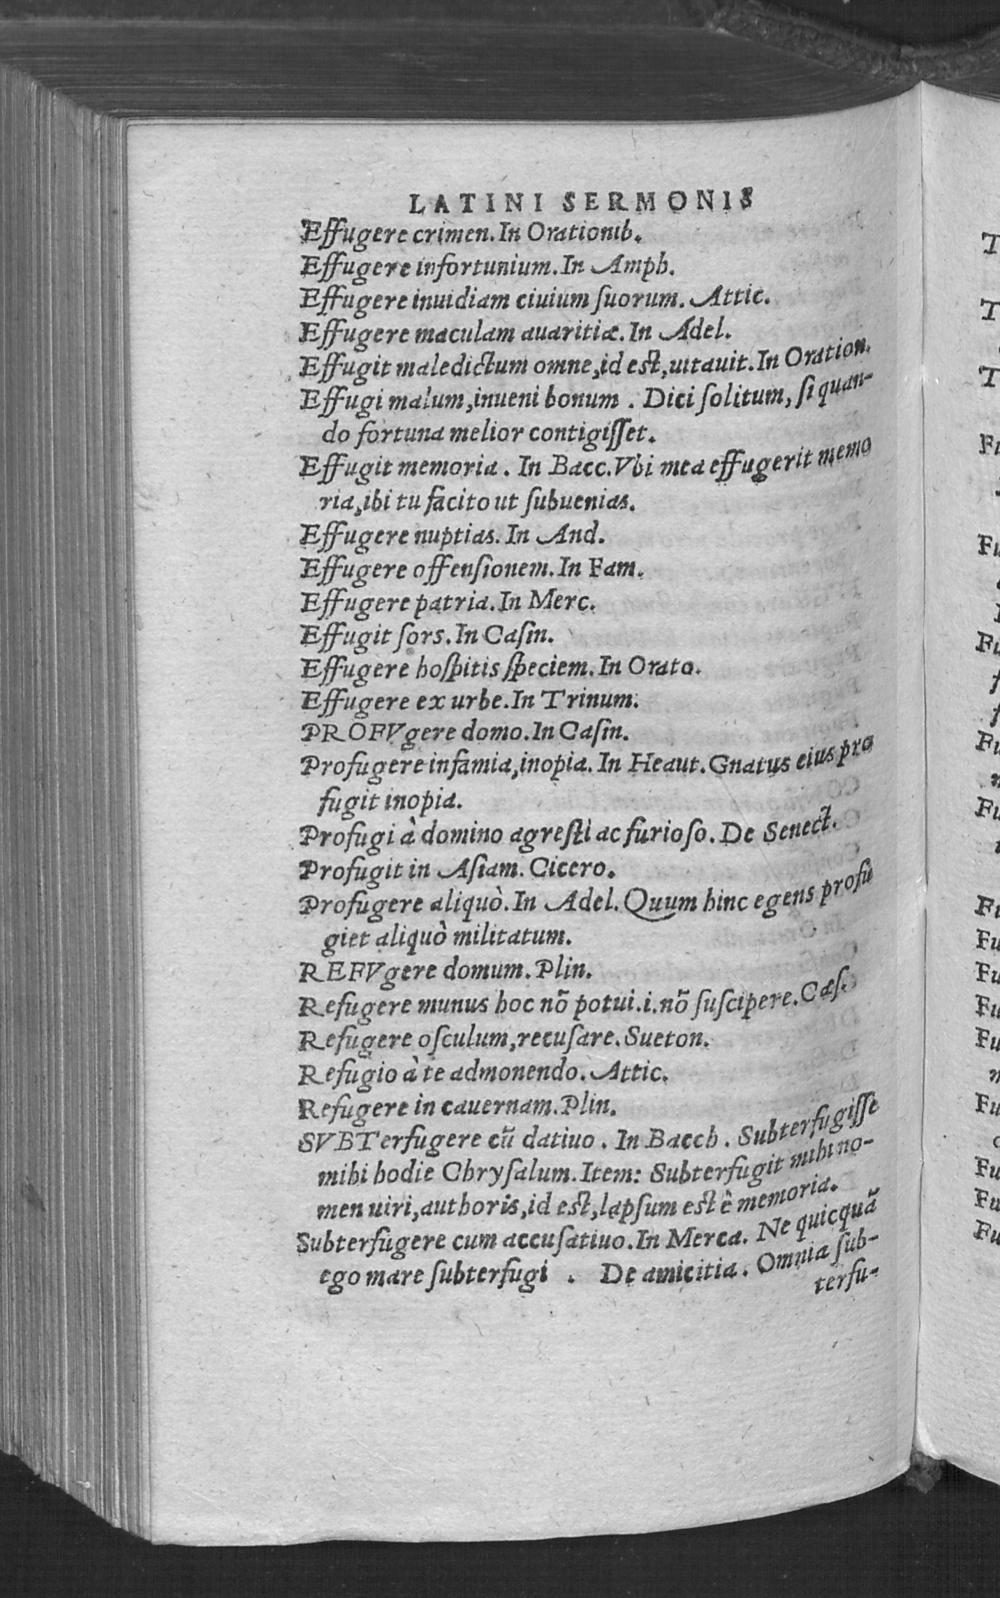 LATINI SERMONIS
Effugere crimen. In Orationib.
Effugere infortunium. In Amph.
Effugere inuidiam ciuium ſuorum. Attic.
Effugere maculam auaritiæ. In Adel.
Effugit maledictum omne, id eſt, uitauit. In Oration.
Effugi malum, inueni bonum . Dici ſolitum, ſi quan-
do fortuna melior contigiſſet.
Effugit memoria . In Bacc. Vbi mea effugerit memo
ria, ibi tu facito ut ſubuenias.
Effugere nuptias. In And.
Effugere offenſionem. In Fam.
Effugere patria. In Merc.
Effugit ſors. In Caſin.
Effugere hoſpitis ſpeciem. In Orato.
Effugere ex urbe. In Trinum.
PROFVgere domo. In Caſin.
Profugere infamia, inopia. In Heaut. Gnatus eius pro
fugit inopia.
Profugi à domino agreſti ac furioſo. De Senect.
Profugit in Aſiam. Cicero.
Profugere aliquò. In Adel. Quum hinc egens profu
giet aliquò militatum.
REFVgere domum. Plin.
Refugere munus hoc nõ potui .i. nõ ſuſcipere. Cæſ.
Refugere oſculum, recuſare. Sueton.
Refugio à te admonendo. Attic.
Refugere in cauernam. Plin.
SVBTerfugere cũ datiuo . In Bacch . Subterfugiſſe
mihi hodie Chryſalum. Item: Subterfugit mihi no-
men uiri, authoris, id eſt, lapſum eſt è memoria.
Subterfugere cum accuſatiuo. In Merca. Ne quicquã
ego mare ſubterfugi . De amicitia. Omnia ſub-
terfu-
T
T
T
Fu
Fu
Fu
Fu
Fu
Fu
Fu
Fu
Fu
Fu
Fu
Fu
Fu